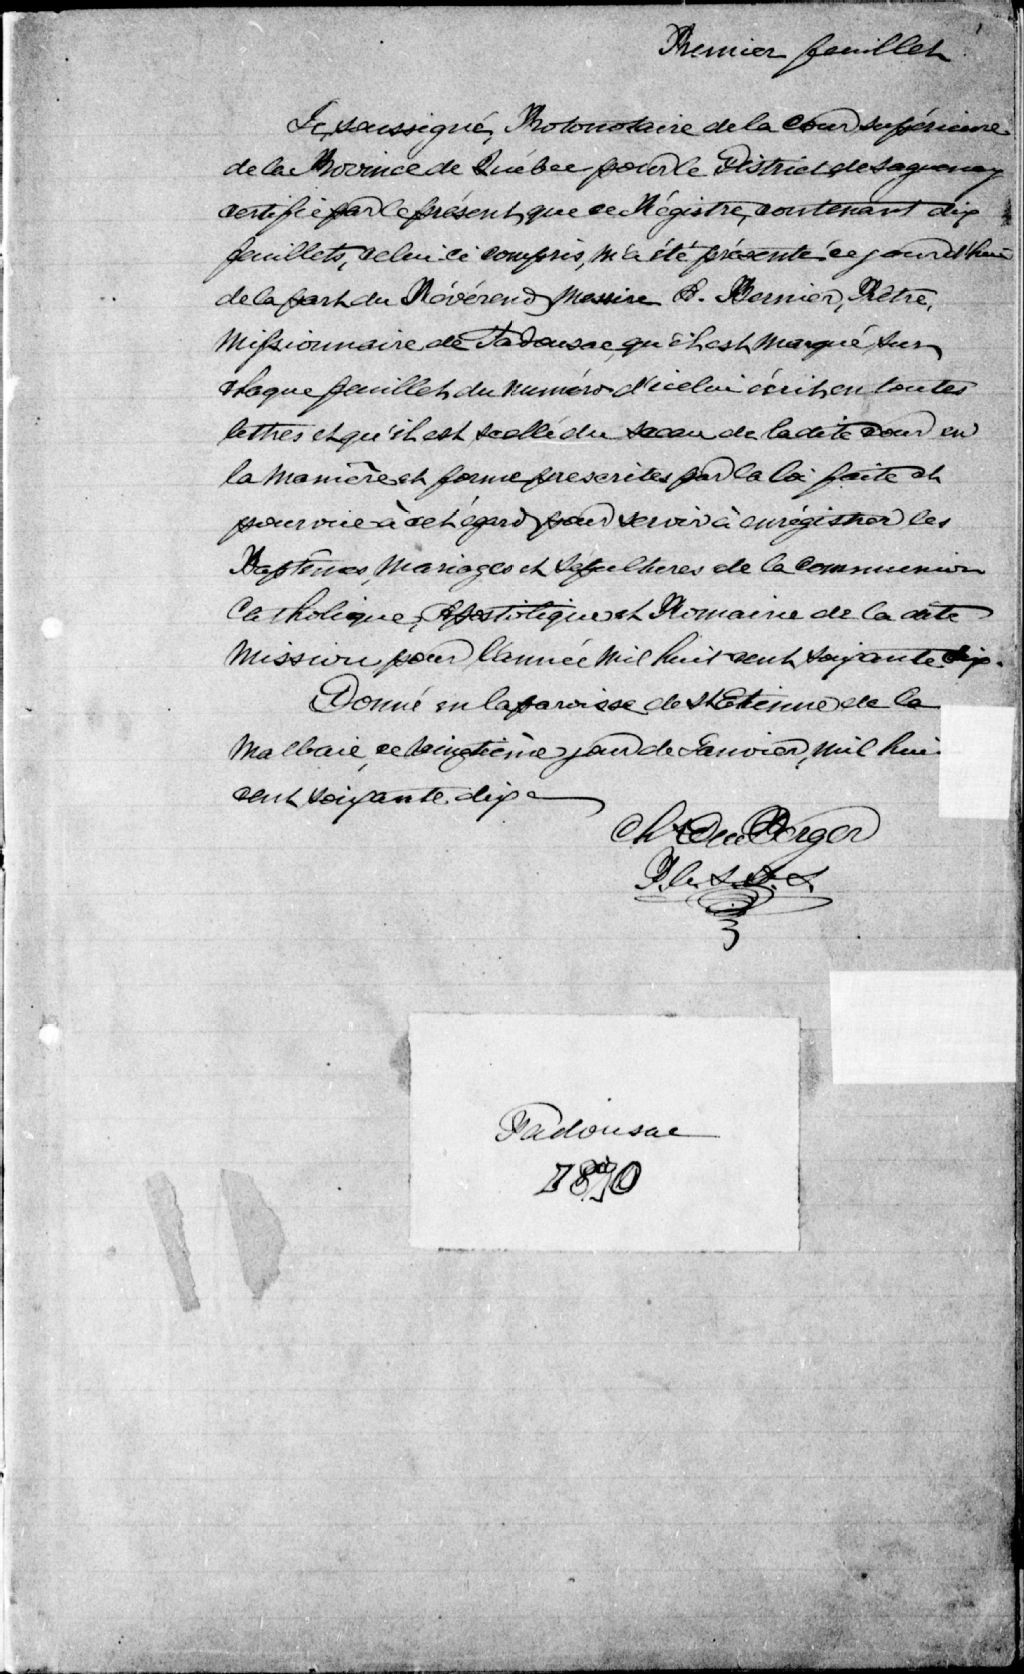 Premier feuillet
Je, soussigné, Protonotaire de la Cour supérieure
de la Province de Québec pour le District de Saguenay
certifie par le présent, que ce Régistre, contenant dix
feuillets, celui ci compris, m'a été présenté ce jourd'hui
de la part du Révérend Messire Bernier, Prêtre,
Missionnaire de Tadousac, qu'il est marqué, sur
chaque feuillet du numéro d'icelui écrit en toutes
lettres et qu'il est scellé du sceau de la dite cour en
la manière et forme prescrites par la loi faite et
pourvue à cet égard pour servir à enrégistrer les
Baptêmes, Mariages et Sépultures de la communion
Catholique, Apostolique et Romaine de la dite
Mission pour l'année mil huit cent soixante dix.
Donné en la paroisse de St Etienne de la
Malbaie, ce vingtième jour de Janvier, mil hui
cent soixante. dix
Chs DuBerger
P. C. S. D. S.
Tadousac
1870